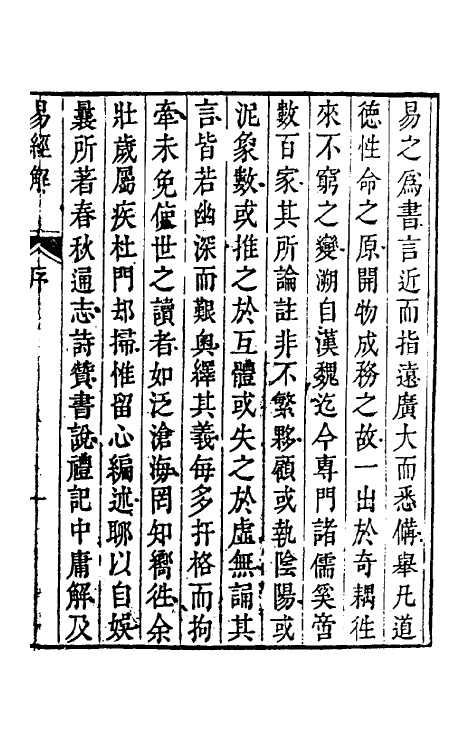 易之爲書言近而指遠廣大而悉備舉凡道
德性命之原開物成務之故一出於奇耦徃
來不窮之變溯自漢魏迄今專門諸儒奚啻
數百家其所論註非不繁夥顧或執陰陽或
泥象數或推之於互體或失之於虛無誦其
言皆若幽深而艱奥繹其義每多扞格而拘
牽未免使世之讀者如泛滄海罔知嚮徃余
壯歲屬疾杜門却掃惟留心編述聊以自娛
曩所著春秋通志詩贊書說禮記中庸解及
易經解
序